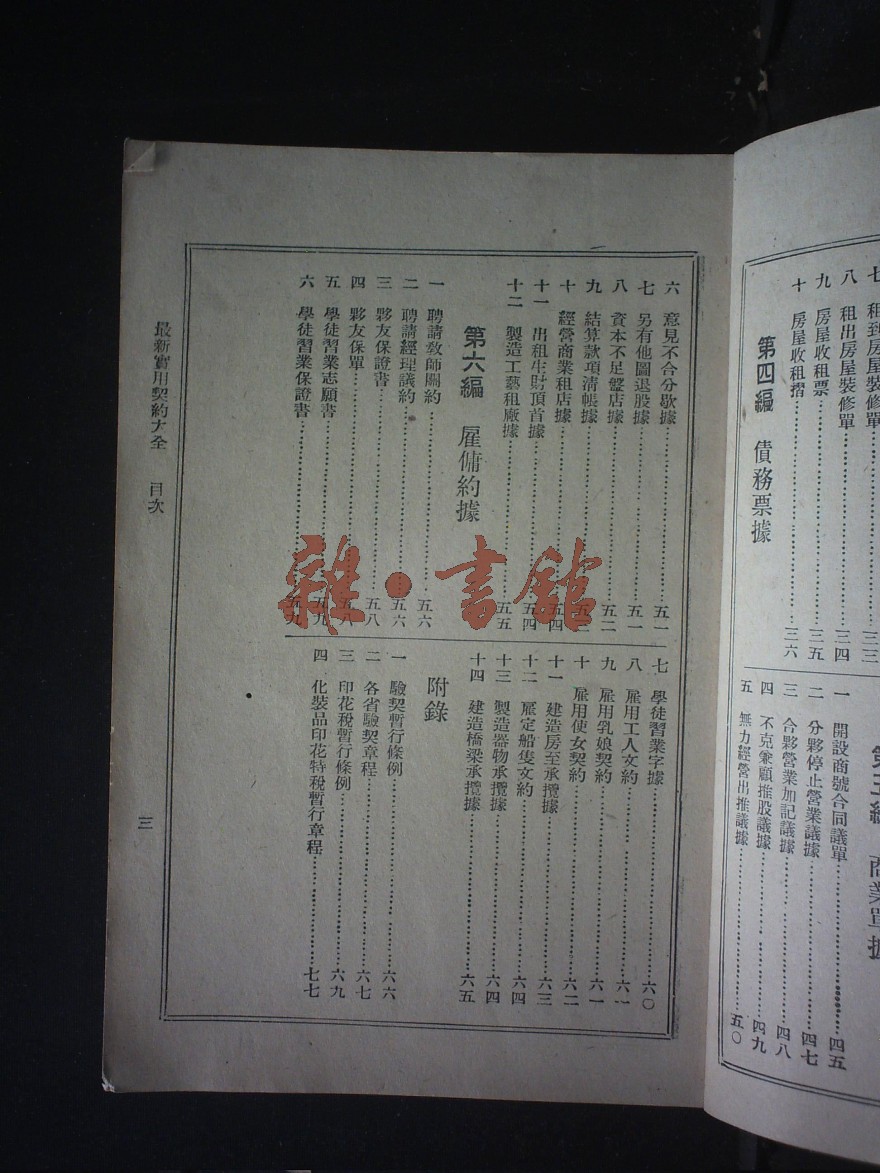 七 租到房屋裝修單……三三
八 租出房屋裝修單……三四
九 房屋收租票……三五
十 房屋收租摺……三六
第四編 債務票據
第五編 商業單據
一 開設商號合同議單……四五
二 分夥停止營業議據……四七
三 合夥營業加記議據……四八
四 不克兼顧推股議據……四九
五 無力經營出推議據……五〇
六 意見不合分歇據……五一
七 另有他圖退股據……五一
八 資本不足盤店據……五二
九 結算款項清帳據
十 經營商業租店據……五四
十一 出租生財頂首據……五四
十二 製造工藝租廠據……五五
第六編 雇傭約據
一 聘請教師關約……五六
二 聘請經理議約……五六
三 夥友保證書……五八
四 夥友保單……五八
五 學徒習業志願書……五九
六 學徒習業保證書……五九
七 學徒習業字據……六〇
八 雇用工人文約……六一
九 雇用乳娘契約……六一
十 雇用使女契約……六二
十一 建造房至承攬據……六三
十二 雇定船隻文約……六四
十三 製造器物承攬據……六四
十四 建造橋梁承攬據……六五
附錄
一 驗契暫行條例……六六
二 各省驗契章程……六七
三 印花稅暫行條例……六九
四 化裝品印花特稅暫行章程……七七
最新實用契約大全 目次 三
雜·書館